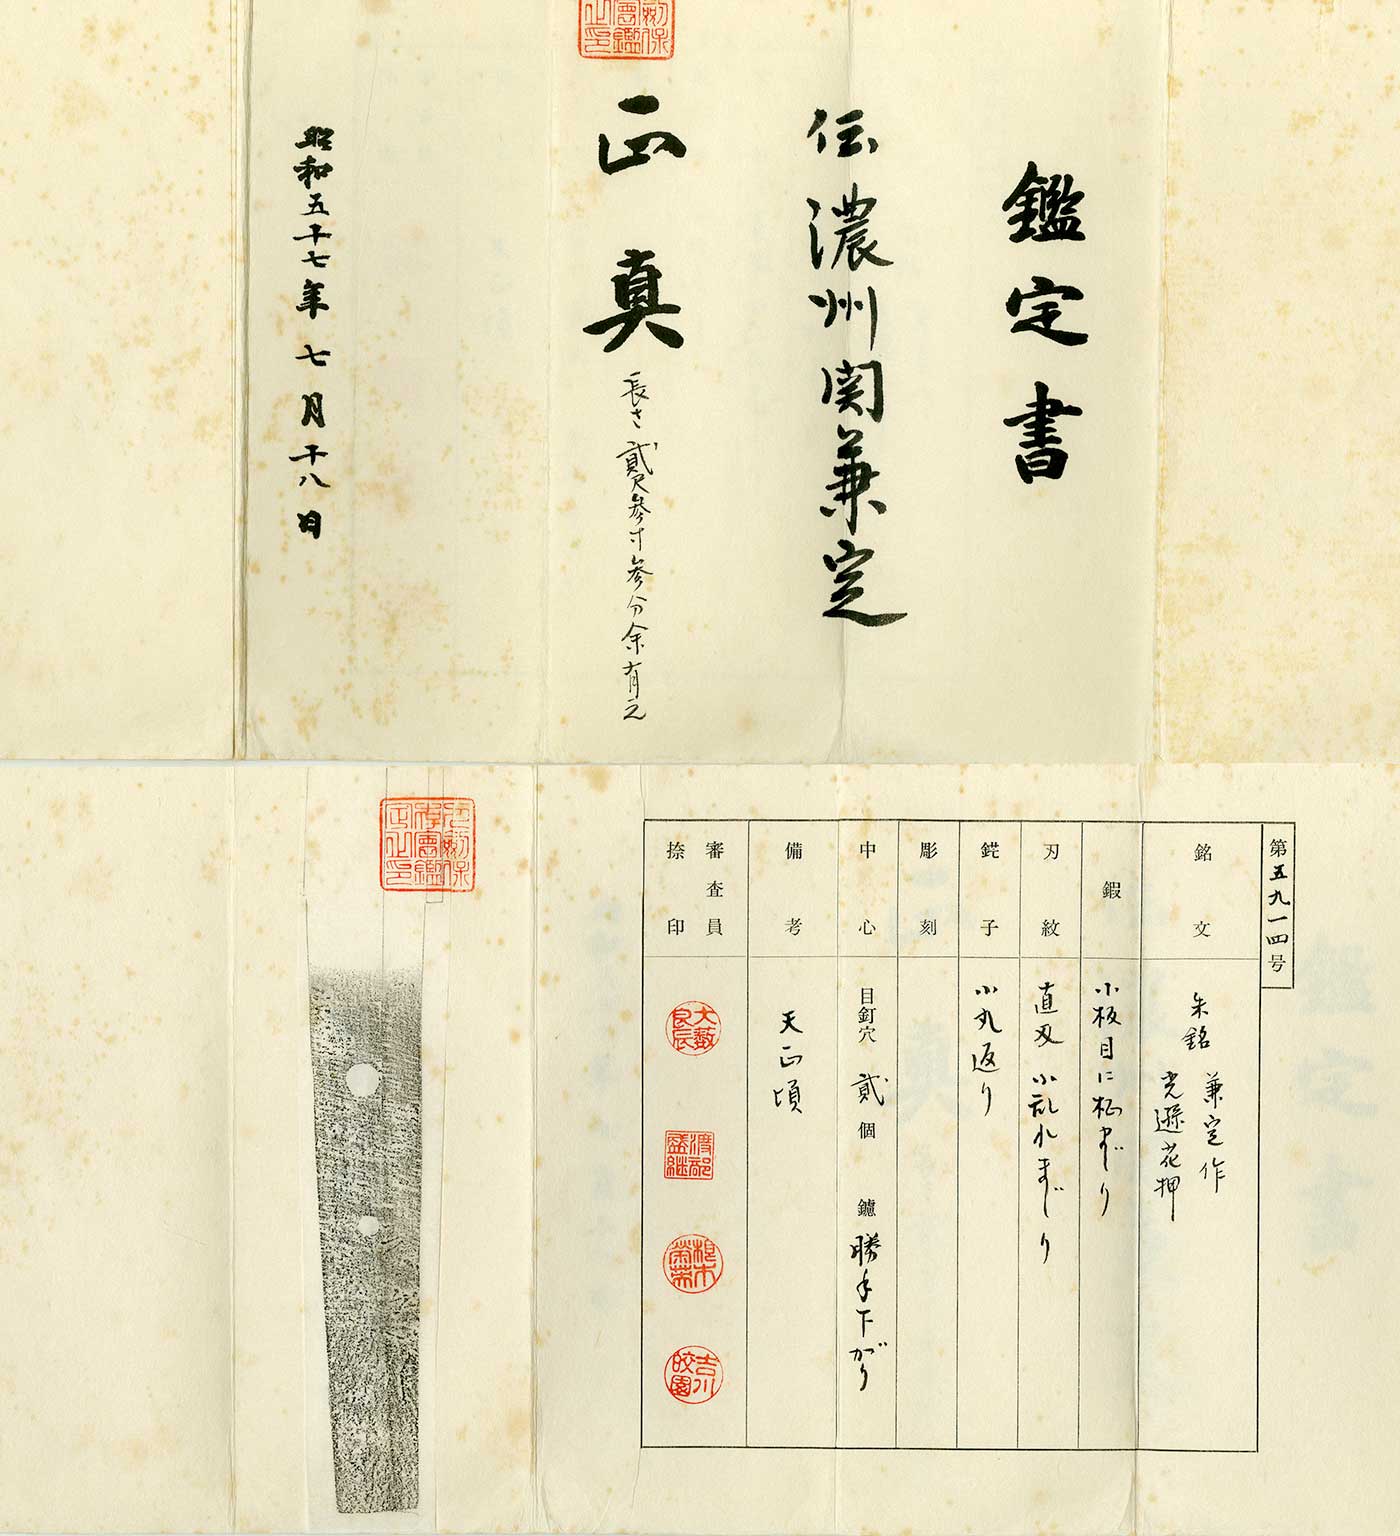 鑑定書
伝濃州関兼定
正真
長さ貮尺参寸参分余有之
昭和五十七年七月十八日
第五九一四号
銘文
朱銘 兼定作
光遜花押
鍜
小板目に柾まじり
刃紋
直刃小乱れまじり
鋩子
小丸返り
彫刻
中心
目釘穴 貮 個 鑢 勝手下がり
備考
天正頃
審査員
捺印
大薮
渡部
盛継
柏木
吉川
皎園